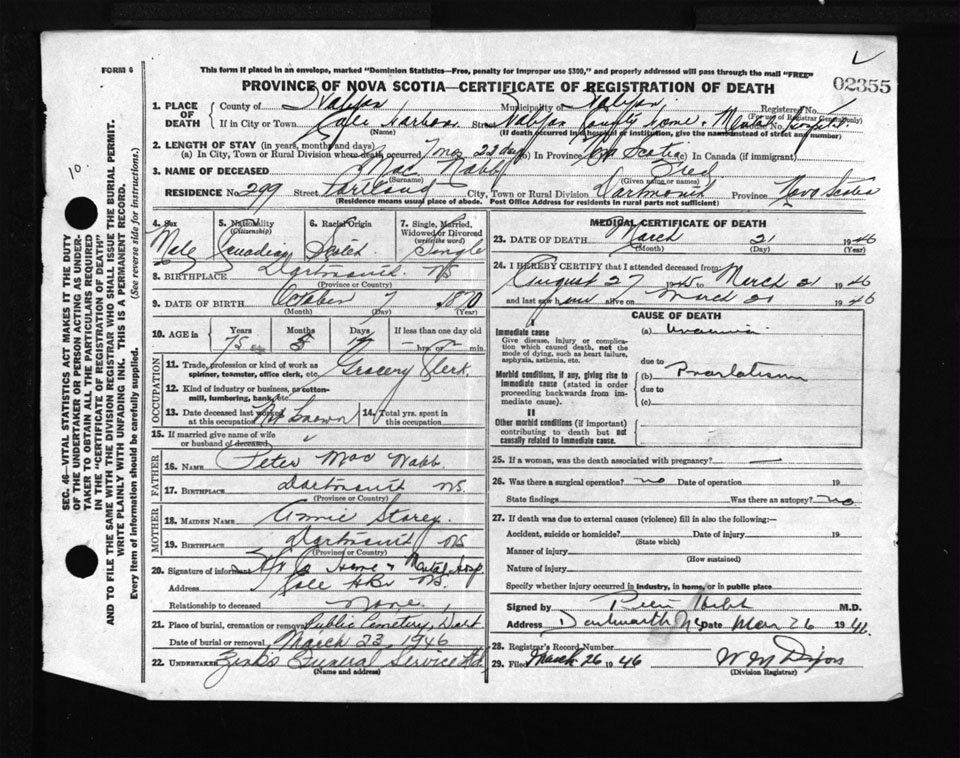 FORM 6
This form if placed in an envelope, marked "Dominion Statistics—Free, penalty for improper use $300," and properly addressed will pass through the mail "FREE"
PROVINCE OF NOVA SCOTIA—CERTIFICATE OF REGISTRATION OF DEATH
02355
10
SEC. 46—VITAL STATISTICS ACT MAKES IT THE DUTY
OF THE UNDERTAKER OR PERSON ACTING AS UNDER-
TAKER TO OBTAIN ALL THE PARTICULARS REQUIRED
IN THE "CERTIFICATE OF REGISTRATION OF DEATH"
AND TO FILE THE SAME WITH THE DIVISION REGISTRAR WHO SHALL ISSUE THE BURIAL PERMIT.
WRITE PLAINLY WITH UNFADING INK. THIS IS A PERMANENT RECORD.
Every item of information should be carefully supplied. (See reverse side for instructions.)
1. PLACE OF DEATH County of Halifax Municipality of Halifax Registered No.
(For use of Registrar General only)
If in City or Town Cole Harbor Street Halifax County Home & Mental Hospital House No.
(Name) (If death occurred in a hospital or institution, give the name instead of street and number)
2. LENGTH OF STAY (in years, months and days)
(a) In City, Town or Rural Division where death occurred 7 mos 23 days (b) In Province Nova Scotia (c) In Canada (if immigrant)
3. NAME OF DECEASED Mac Nabb Fred
(Surname) (Given name or names)
RESIDENCE No. 299 Street Portland City, Town or Rural Division Dartmouth Province Nova Scotia
(Residence means usual place of abode. Post Office Address for residents in rural parts not sufficient)
4. Sex Male
5. Nationality (Citizenship) Canadian
6. Racial Origin Scotch
7. Single, Married, Widowed or Divorced (write the word) Single
8. BIRTHPLACE Dartmouth NS
(Province or Country)
9. DATE OF BIRTH October 7 1870
(Month) (Day) (Year)
10. AGE in Years 75 Months 5 Days If less than one day old hrs. or min.
OCCUPATION
11. Trade, profession or kind of work as spinner, teamster, office clerk, etc. Grocery Clerk
12. Kind of industry or business, as cotton-mill, lumbering, bank, etc.
13. Date deceased last worked at this occupation Not known
14. Total yrs. spent in this occupation
15. If married give name of wife or husband of deceased
FATHER
16. NAME Peter Mac Nabb
17. BIRTHPLACE Dartmouth NS
(Province or Country)
MOTHER
18. MAIDEN NAME Annie Storey
19. BIRTHPLACE Dartmouth NS
(Province or Country)
20. Signature of informant Hfx Co Home & Mental Hosp
Address Cole Hbr NS.
Relationship to deceased None
21. Place of burial, cremation or removal Public Cemetery, Dart
Date of burial or removal March 23, 1946
22. UNDERTAKER Zink's Funeral Service Ltd.
(Name and address)
MEDICAL CERTIFICATE OF DEATH
23. DATE OF DEATH March 21 1946
(Month) (Day) (Year)
24. I HEREBY CERTIFY that I attended deceased from
August 27 1945 to March 21 1946
and last saw him alive on March 21 1946
CAUSE OF DEATH
Immediate cause (a) Uraemia
Give disease, injury or complication which caused death, not the mode of dying, such as heart failure, asphyxia, asthenia, etc.
due to
Morbid conditions, if any, giving rise to immediate cause (stated in order proceeding backwards from immediate cause). (b) Prostatism
due to
(c)
II
Other morbid conditions (if important) contributing to death but not causally related to immediate cause.
25. If a woman, was the death associated with pregnancy? —
26. Was there a surgical operation? no Date of operation 19
State findings Was there an autopsy? no
27. If death was due to external causes (violence) fill in also the following:—
Accident, suicide or homicide? Date of injury 19
(State which)
Manner of injury
(How sustained)
Nature of injury
Specify whether injury occurred in industry, in home, or in public place
Signed by M.D.
Address Dartmouth NS Date Mar 26 1946
28. Registrar's Record Number
29. Filed March 26 1946
(Division Registrar)